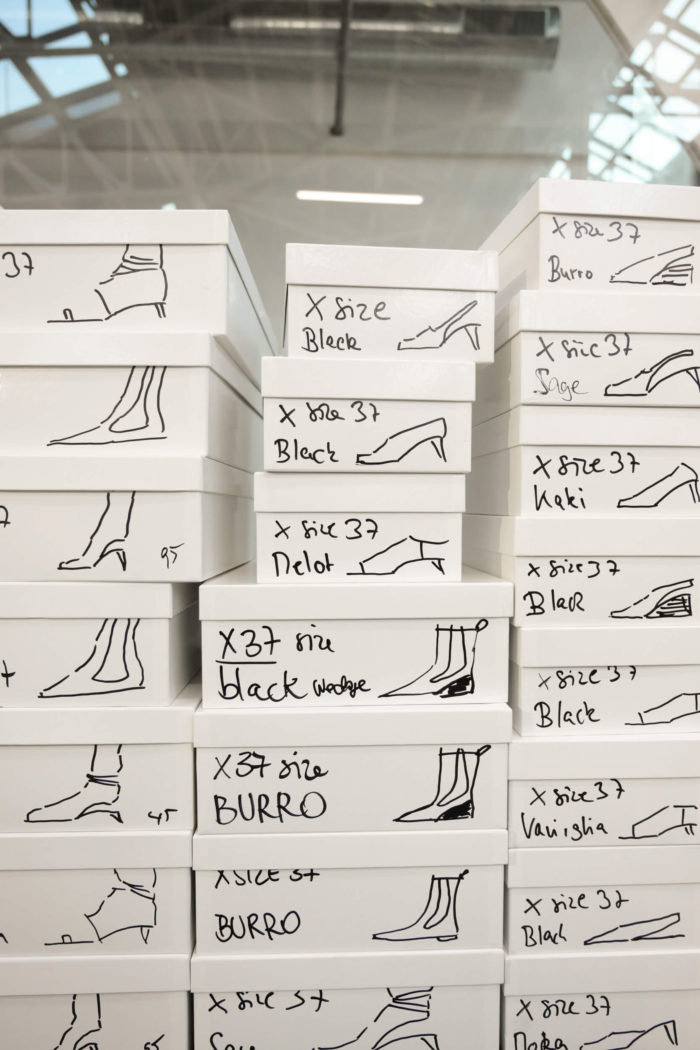 37
95
45
X size
Black
X size 37
Black
X size 37
Nelot
X 37 size
black wedge
X 37 size
BURRO
X SIZE 37
BURRO
X size 37
X size 37
Burro
X size 37
Sage
X size 37
Kaki
X size 37
Black
X size 37
Black
X size 37
Vaniglia
X size 37
Black
X size 37